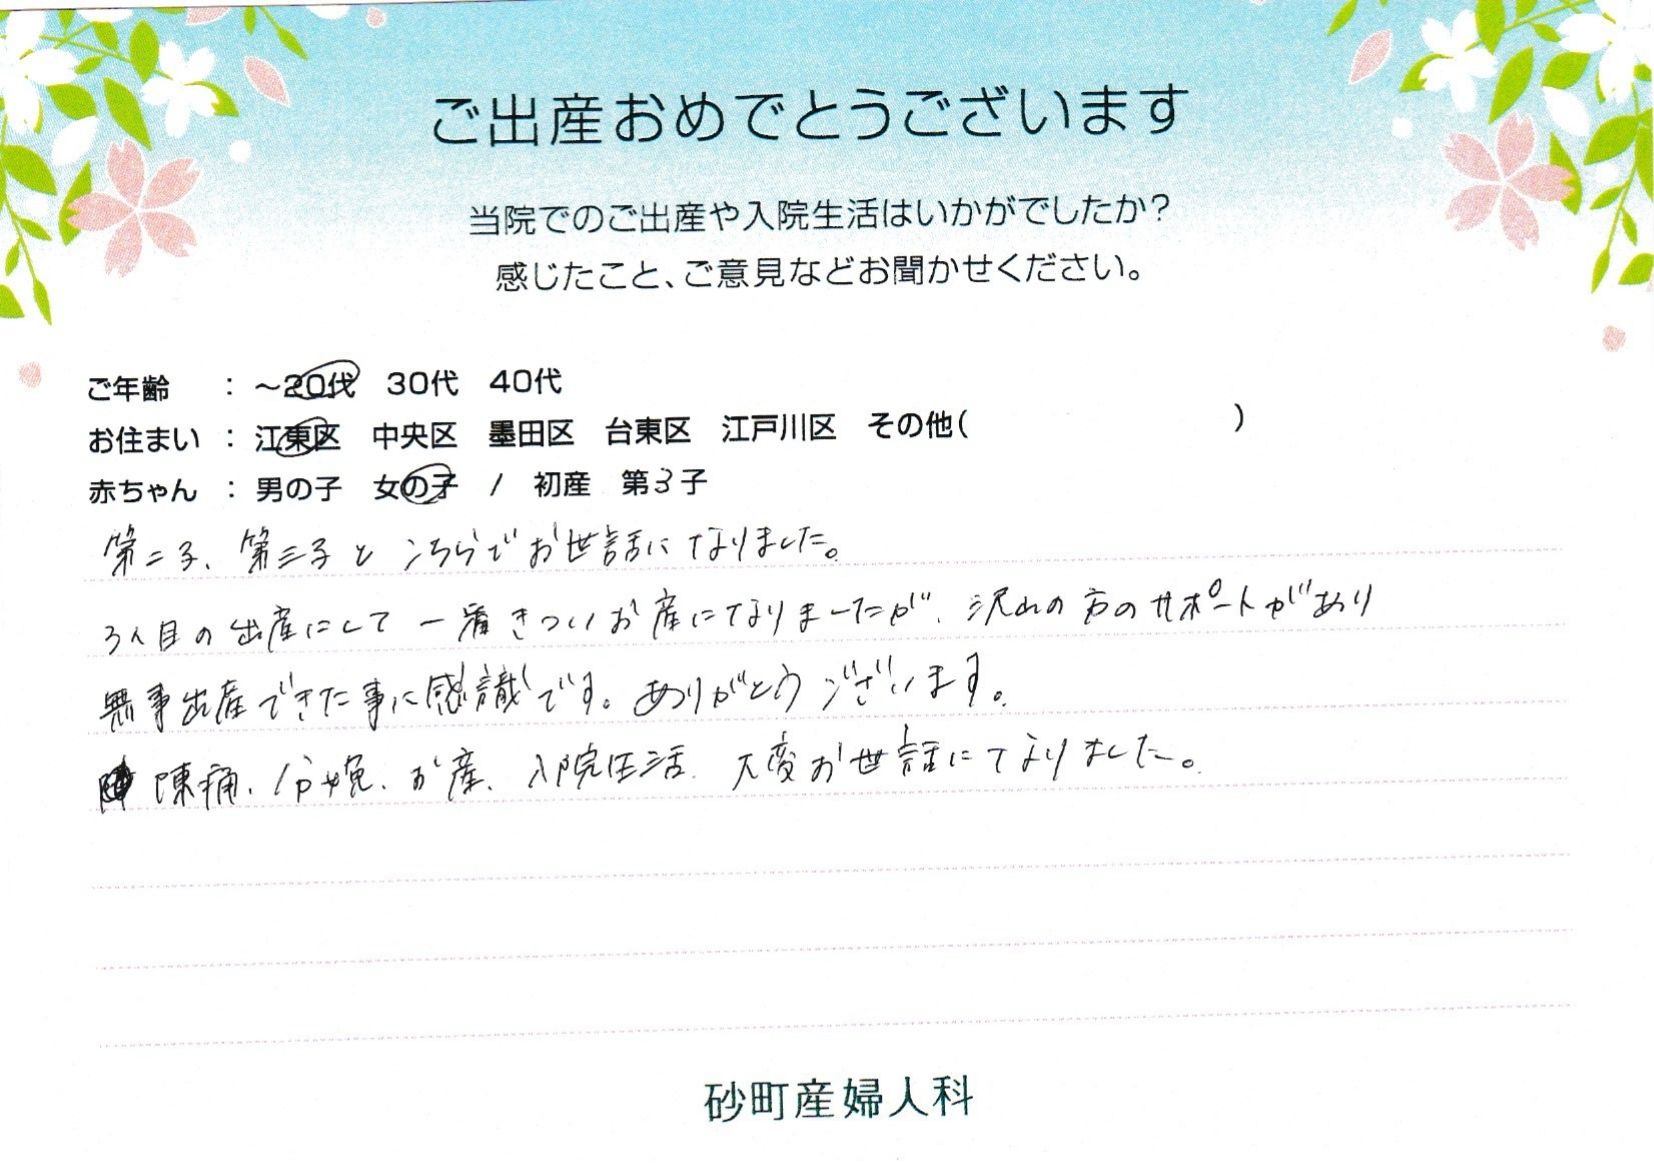 ご出産おめでとうございます
当院でのご出産や入院生活はいかがでしたか？
感じたこと、ご意見などお聞かせください。
ご年齢 ： ～20代 30代 40代
お住まい ： 江東区 中央区 墨田区 台東区 江戸川区 その他( )
赤ちゃん ： 男の子 女の子 / 初産 第3子
第二子、第三子と こちらでお世話になりました。
3人目の出産にして 一番きついお産になりましたが、沢山の方のサポートがあり
無事出産できた事に感謝です。ありがとうございます。
陣痛、分娩、お産、入院生活、大変お世話になりました。
砂町産婦人科